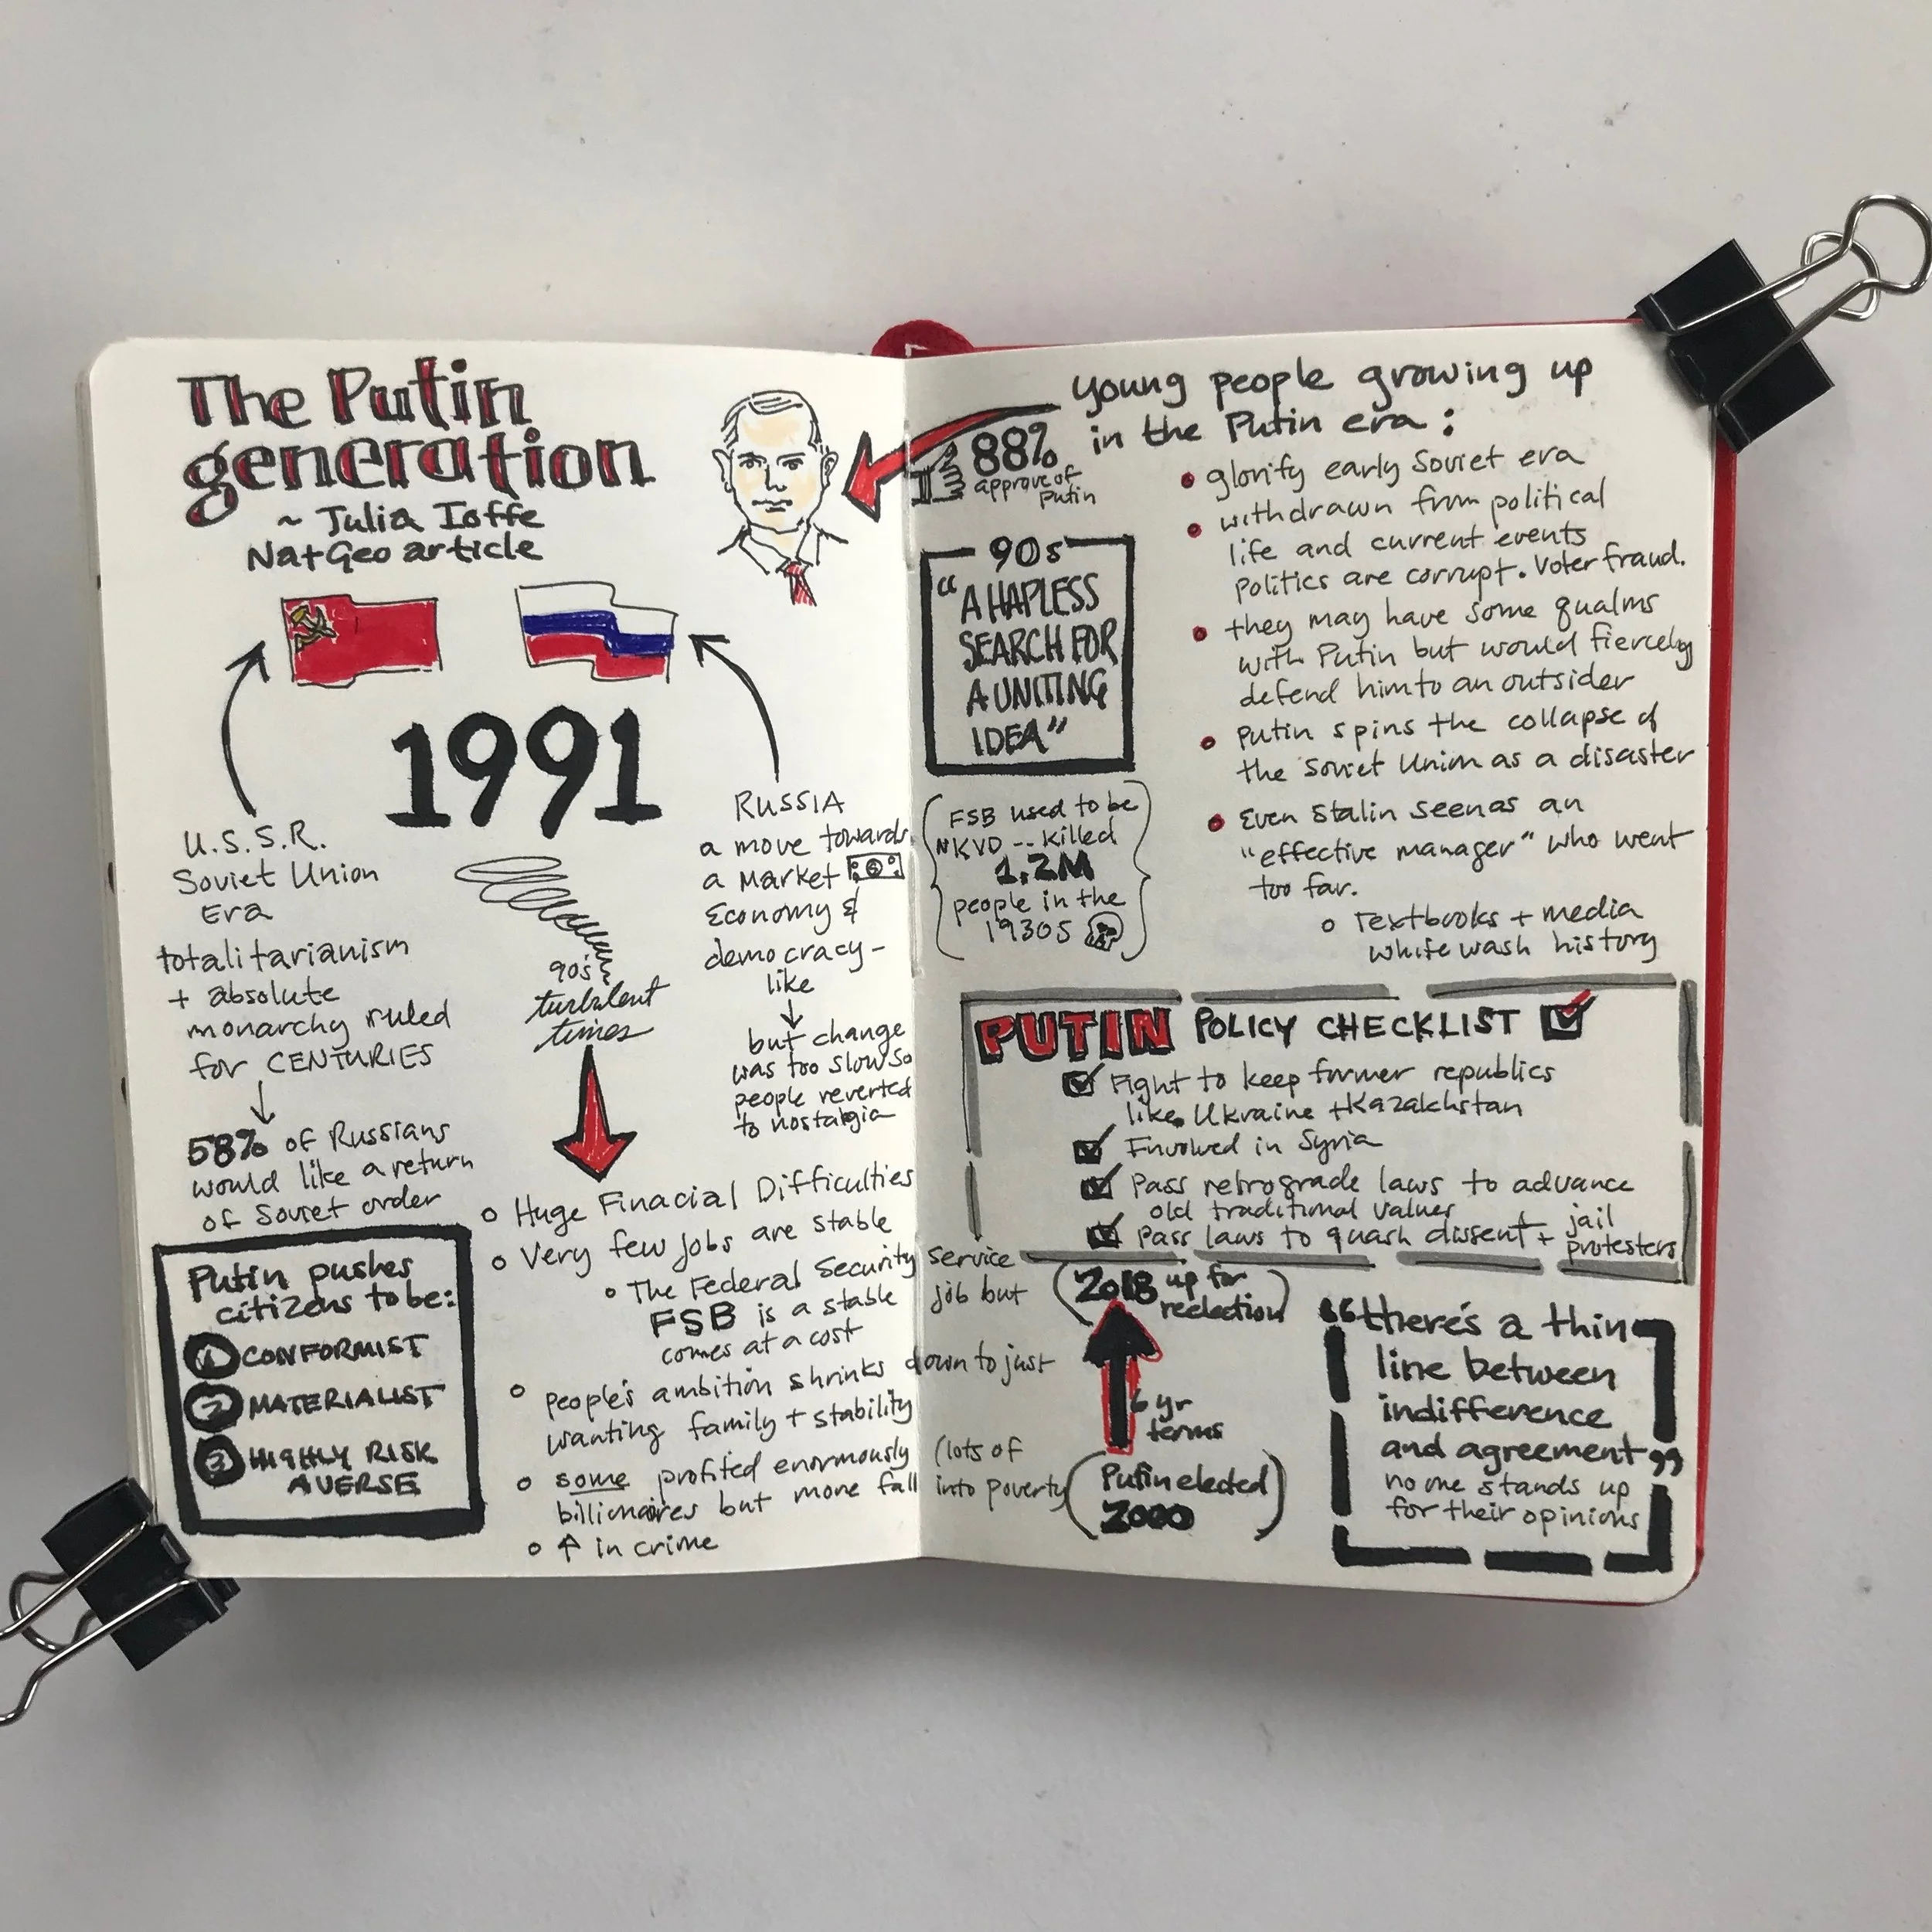 The Putin
generation
~ Julia Ioffe
NatGeo article
1991
U.S.S.R.
Soviet Union
Era
totalitarianism
+ absolute
monarchy ruled
for CENTURIES
58% of Russians
would like a return
of Soviet order
Putin pushes
citizens to be:
1 CONFORMIST
2 MATERIALIST
3 HIGHLY RISK
AVERSE
90's
turbulent
times
RUSSIA
a move towards
a market
Economy &
democracy-
like
but change
was too slow so
people reverted
to nostalgia
Huge Finacial Difficulties
Very few jobs are stable
The Federal Security Service
FSB is a stable job but
comes at a cost
people's ambition shrinks down to just
wanting family + stability
some profited enormously (lots of
billionaires but more fall into poverty
↑ in crime
88%
approve of
Putin
Young people growing up
in the Putin era:
glorify early Soviet era
withdrawn from political
life and current events
Politics are corrupt. Voter fraud.
they may have some qualms
with Putin but would fiercely
defend him to an outsider
Putin spins the collapse of
the Soviet Union as a disaster
Even Stalin seen as an
"effective manager" who went
too far.
Textbooks + media
white wash history
90s
"A HAPLESS
SEARCH FOR
A UNITING
IDEA"
FSB used to be
NKVD -- killed
1.2M
people in the
1930s
PUTIN POLICY CHECKLIST
Fight to keep former republics
like Ukraine + Kazakhstan
Envolved in Syria
Pass retrograde laws to advance
old traditional values
Pass laws to quash dissent + jail
protesters
(2018 up for
reelection)
6 yr
terms
(Putin elected
2000)
"there's a thin
line between
indifference
and agreement"
no one stands up
for their opinions